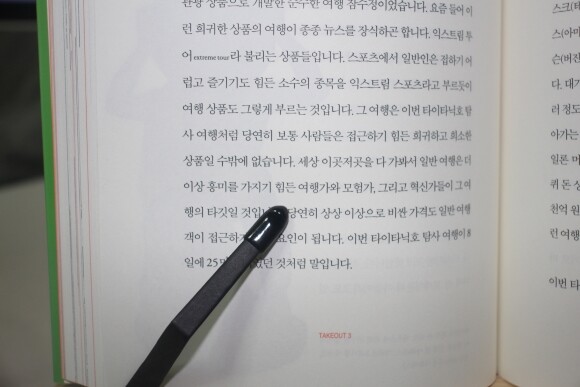 관광 상품으로 개발한 순수한 여행 잠수정이었습니다. 요즘 들어 이
런 희귀한 상품의 여행이 종종 뉴스를 장식하곤 합니다. 익스트림 투
어extreme tour라 불리는 상품들입니다. 스포츠에서 일반인은 접하기 어
렵고 즐기기도 힘든 소수의 종목을 익스트림 스포츠라고 부르듯이
여행 상품도 그렇게 부르는 것입니다. 그 여행은 이번 타이타닉호 탐
사 여행처럼 당연히 보통 사람들은 접근하기 힘든 희귀하고 희소한
상품일 수밖에 없습니다. 세상 이곳저곳을 다 가봐서 일반 여행은 더
이상 흥미를 가지기 힘든 여행가와 모험가, 그리고 혁신가들이 그 여
행의 타깃일 것입 당연히 상상 이상으로 비싼 가격도 일반 여행
객이 접근하 요인이 됩니다. 이번 타이타닉호 탐사 여행이 8
일에 25 던 것처럼 말입니다.
TAKEOUT 3
스크(테
스(아마
슨(버진
다. 대기
러 정도
러가는
일론 머
퀴 돈 싱
천억 원
런 여행
이번 타